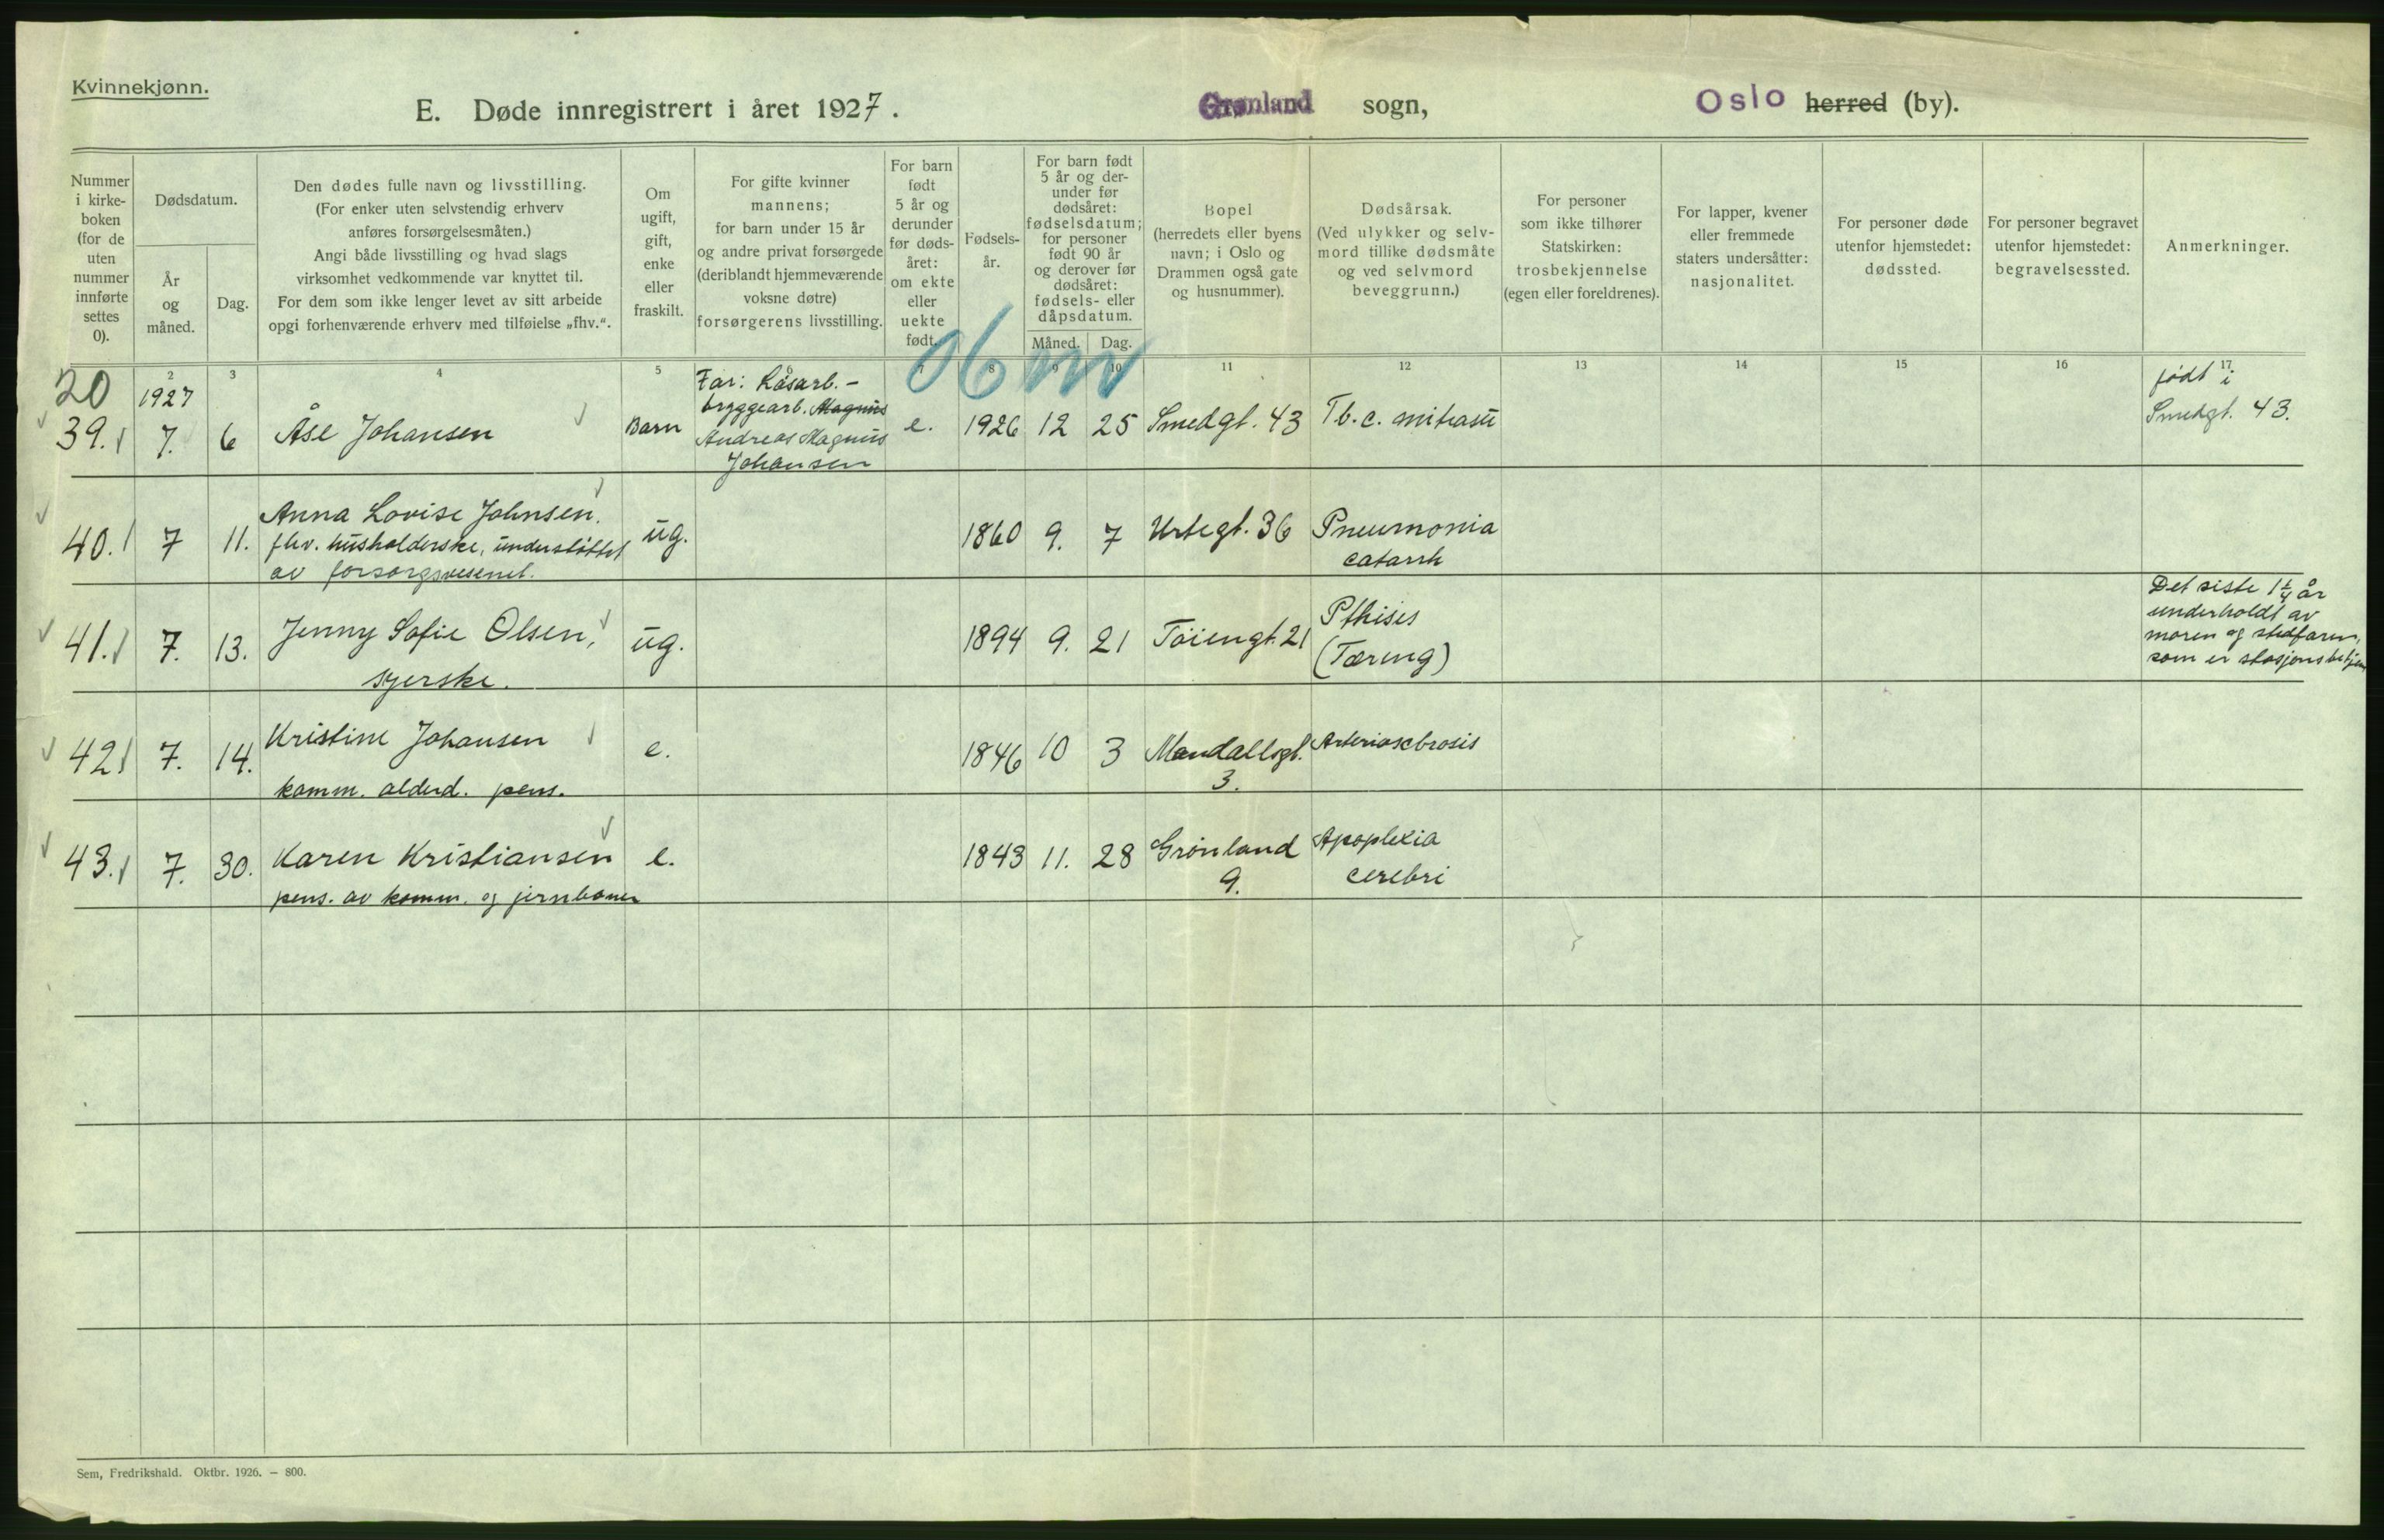 Kvinnekjønn.
E. Døde innregistrert i året 1927. Grønland sogn, Oslo herred (by).
Nummer
i kirke-
boken
(for de
uten
nummer
innførte
settes
0).
Dødsdatum.
År
og
måned.
Dag.
Den dødes fulle navn og livsstilling.
(For enker uten selvstendig erhverv
anføres forsørgelsesmåten.)
Angi både livsstilling og hvad slags
virksomhet vedkommende var knyttet til.
For dem som ikke lenger levet av sitt arbeide
opgi forhenværende erhverv med tilføielse „fhv.“.
Om
ugift,
gift,
enke
eller
fraskilt.
For gifte kvinner
mannens;
for barn under 15 år
og andre privat forsørgede
(deriblandt hjemmeværende
voksne døtre)
forsørgerens livsstilling.
For barn
født
5 år og
derunder
før døds-
året:
om ekte
eller
uekte
født.
Fødsels-
år.
For barn født
5 år og der-
under før
dødsåret:
fødselsdatum;
for personer
født 90 år
og derover før
dødsåret:
fødsels- eller
dåpsdatum.
Måned. Dag.
Bopel
(herredets eller byens
navn; i Oslo og
Drammen også gate
og husnummer).
Dødsårsak.
(Ved ulykker og selv-
mord tillike dødsmåte
og ved selvmord
beveggrunn.)
For personer
som ikke tilhører
Statskirken:
trosbekjennelse
(egen eller foreldrenes).
For lapper, kvener
eller fremmede
staters undersåtter:
nasjonalitet.
For personer døde
utenfor hjemstedet:
dødssted.
For personer begravet
utenfor hjemstedet:
begravelsessted.
Anmerkninger.
2 3 4 5 7 8 9 10 11 12 13 14 15 16 17
20
1927
39. 7. 6 Åse Johansen Barn
Far: Løsarb. -
bryggearb. Magnus
Andreas Magnus
Johansen
e. 1926 12 25 Smedgt. 43 Tb. c.
født i
Smedgt. 43.
40. 7 11. Anna Lovise Johnsen.
fhv. husholderske, understøttet
av forsorgsvesenet.
ug. 1860 9. 7 Urtegt. 36 Pneumonia
catarrh
41. 7. 13. Jenny Sofie Olsen,
syerske.
ug. 1894 9. 21 Tøiengt. 21 Pthises
(Tæring)
Det siste 1 1/4 år
underholdt av
moren og stedfaren,
som er stasjonsbetjen
42 7. 14. Kristine Johansen
komm. alderd. pens.
e. 1846 10 3 Mandallsgt.
3.
Arteriosclrosis
43. 7. 30. Karen Kristiansen
pens. av komm. og jernbanen
e. 1843 11. 28 Grønland
9.
Apoplexia
cerebri
Sem, Fredrikshald. Oktbr. 1926. — 800.